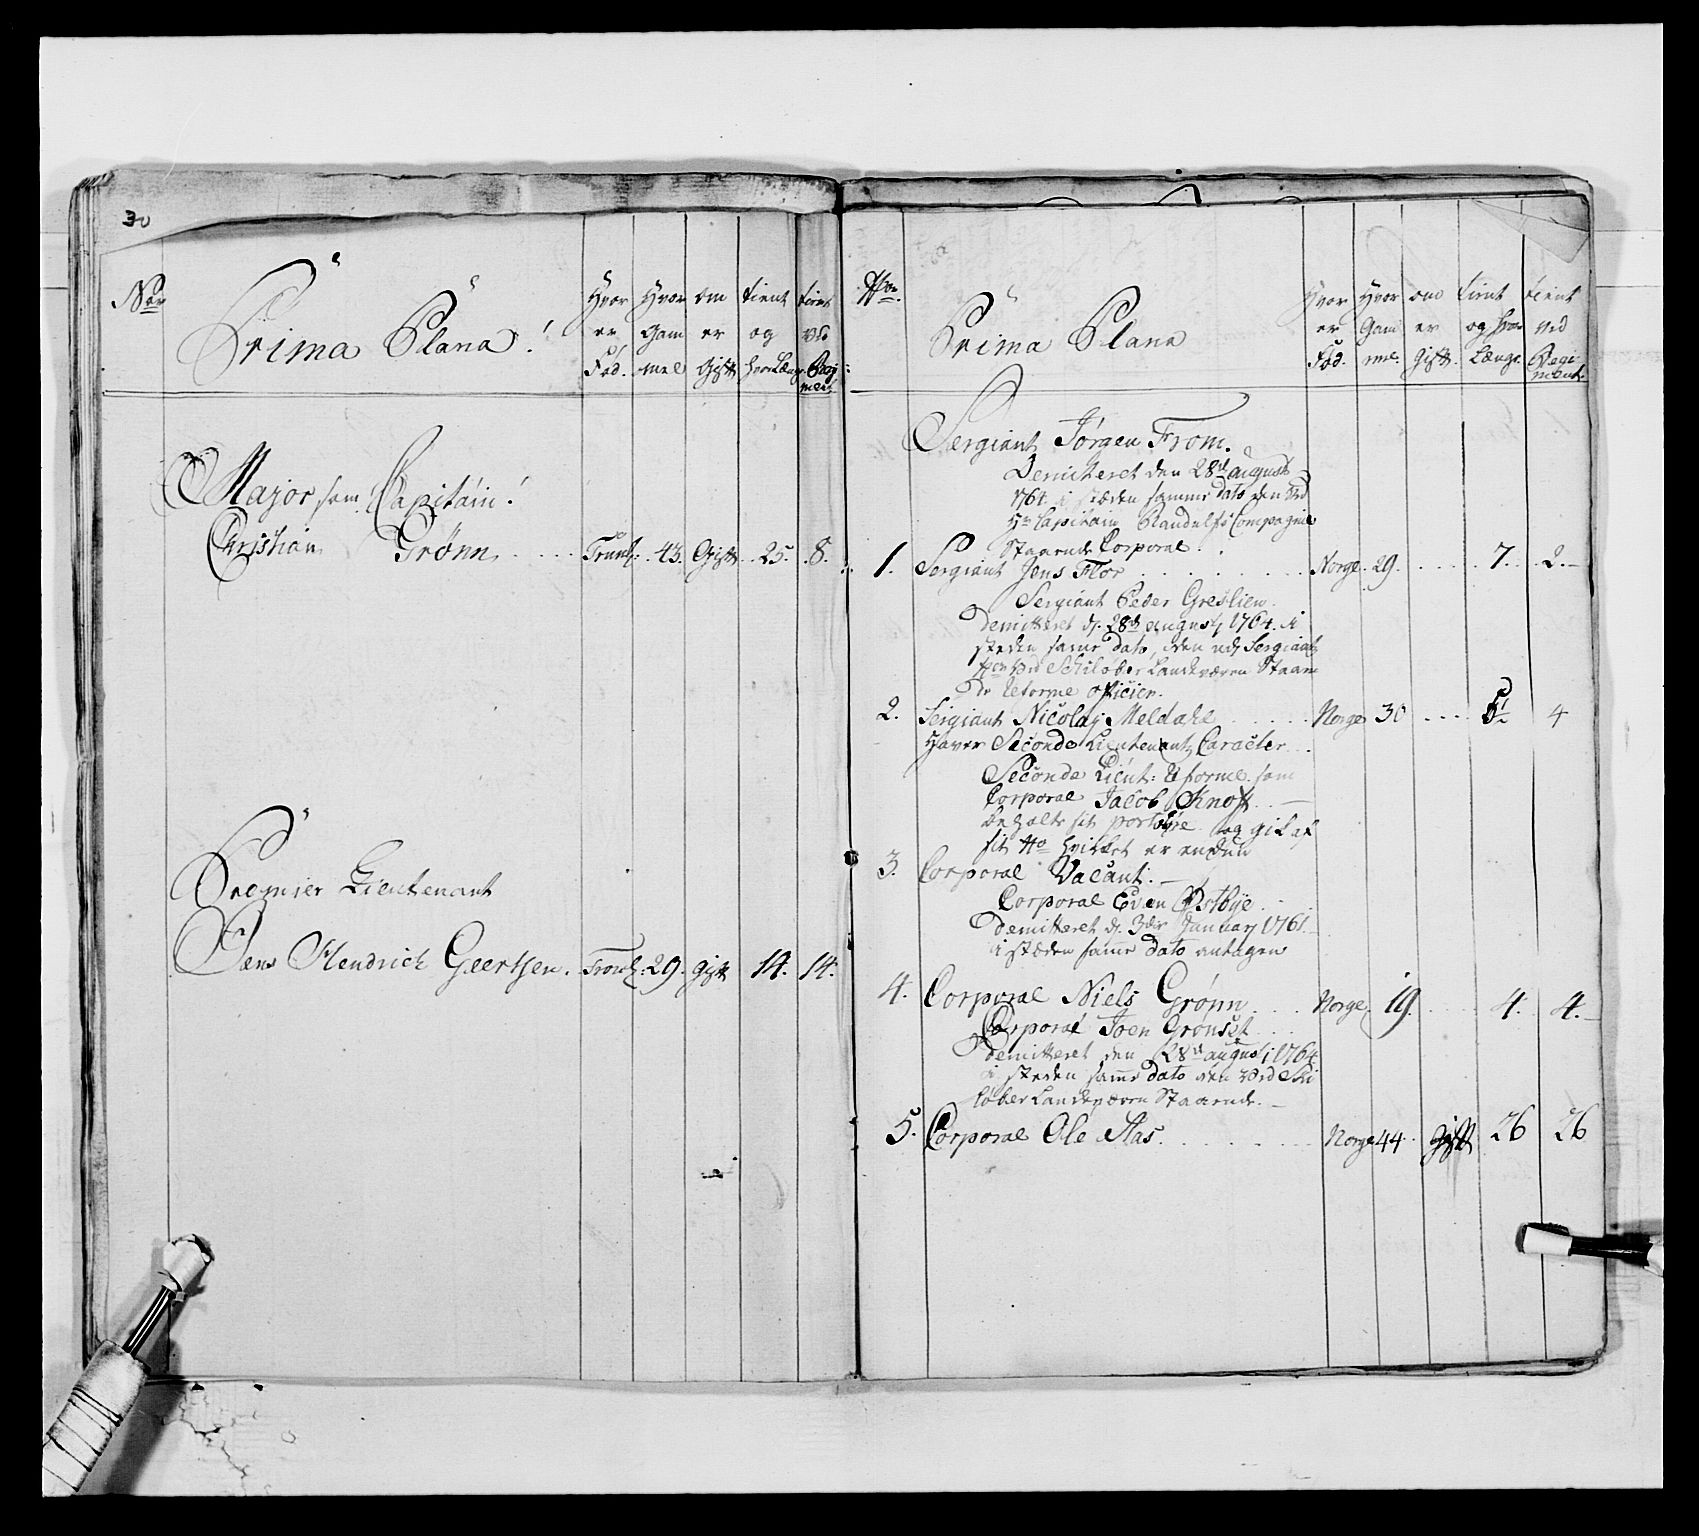 30
No
Prima Plana!
Hvor er Fød.
Hvor Gam mel
om er Gift
tient og hvor Længe
tient ved Regiment
Major som Capitain!
Christian Grønn Trondh: 43. Gift 25. 8.
Premier Lieutenant
Jens Hendrich Geertsen. Trondh: 29. Gift 14. 14.
No
Prima Plana
Hvor er Fød.
Hvor Gam mel.
om er Gift.
tient og hvor Længe.
tient ved Regiment.
Sergiant Jørgen From.
Demitteret den 28de august
1764 i stæden samme dato den ved
Hr Capitain Randulfs Compagnie
Staaende Corporal.
1. Sergiant Jens Flor Norge. 29. 7. 2.
Sergiant Peder Greslien.
demitteret d. 28de august 1764. i
steden samme dato, den
ved Schiløber Landeværn Staaen
de Reforme officier.
2. Sergiant Nicolaj Meldahl Norge 30 4
Haver Seconde Lieutenants Caracter
Seconde Lieut: Reforme som
Corporal Jacob Knoff
behalte sit portepe og gik af
sit No hvilket er endnu
3. Corporal Vacant.
Corporal Even Østbye
demitteret d. 3die January 1761.
i stæden samme dato antagen
4. Corporal Niels Grønn Norge, 19. 4. 4.
Corporal Joen Grønset
demitteret den 28de august 1764
i steden samme dato den ved Ski
løber Landeværn Staaende.
5. Corporal Ole Aas. Norge 44. Gift 26 26